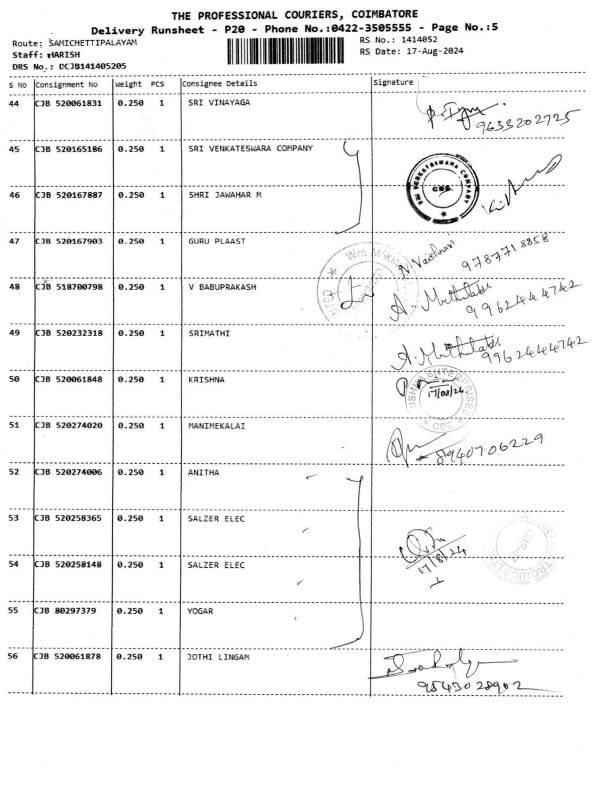 THE PROFESSIONAL COURIERS, COIMBATORE
Delivery Runsheet - P20 - Phone No.:0422-3505555 - Page No.:5
Route: SAMICHETTIPALAYAM
RS No.: 1414052
Staff: HARISH
RS Date: 17-Aug-2024
DRS No.: DCJB141405205
S No Consignment No Weight PCS Consignee Details Signature
44 CJB 520061831 0.250 1 SRI VINAYAGA
9633202725
45 CJB 520165186 0.250 1 SRI VENKATESWARA COMPANY
SRI VENKATESWARA COMPANY
CBE.
46 CJB 520167887 0.250 1 SHRI JAWAHAR M
47 CJB 520167903 0.250 1 GURU PLAAST
N. Vaishnavi
9787718858
48 CJB 518700798 0.250 1 V BABUPRAKASH
9962444742
49 CJB 520232318 0.250 1 SRIMATHI
9962444742
50 CJB 520061848 0.250 1 KRISHNA
ENTERPRISES
17/08/24.
CBE
51 CJB 520274020 0.250 1 MANIMEKALAI
8940706229
52 CJB 520274006 0.250 1 ANITHA
53 CJB 520258365 0.250 1 SALZER ELEC
17/8/24
54 CJB 520258148 0.250 1 SALZER ELEC
55 CJB 80297379 0.250 1 YOGAR
56 CJB 520061878 0.250 1 JOTHI LINGAM
9543028902